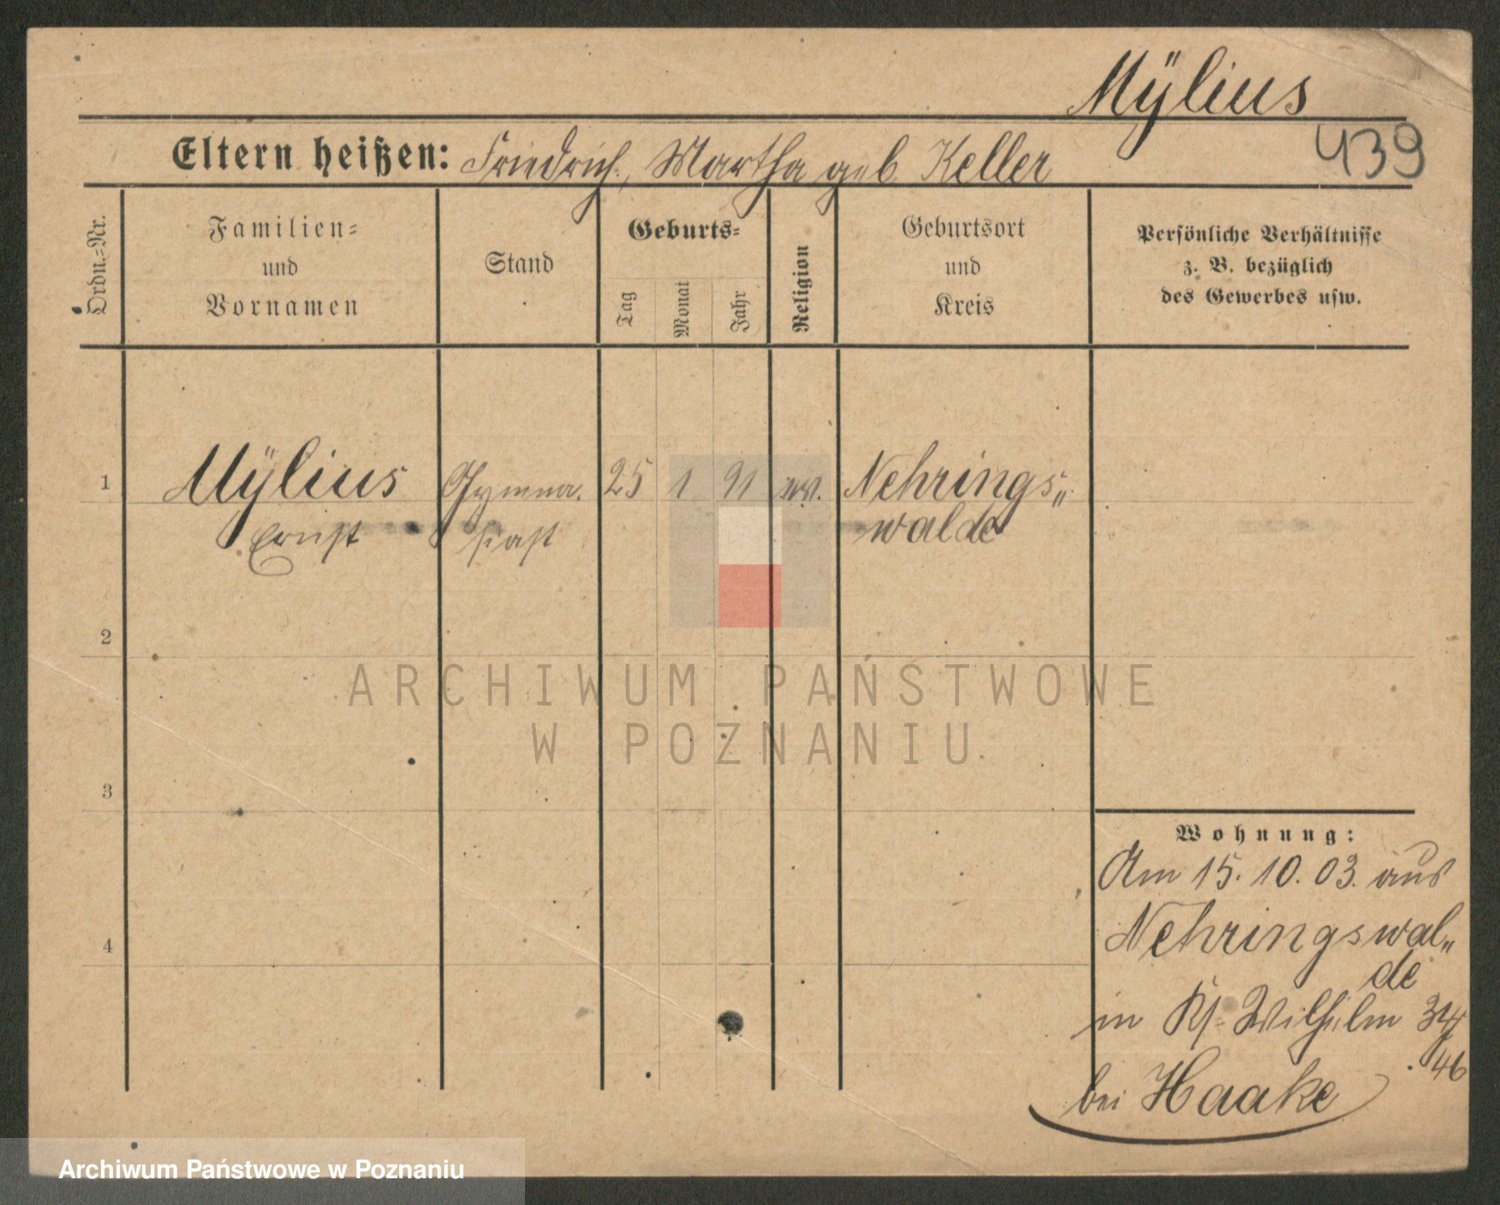 Mÿlius
439
Eltern heißen: Friedrich, Martha geb Keller
Ordn.=Nr.
Familien=
und
Vornamen
Stand
Geburts=
Tag
Monat
Jahr
Religion
Geburtsort
und
Kreis
Persönliche Verhältnisse
z. B. bezüglich
des Gewerbes usw.
1
Mÿlius
Ernst
Gymna.
siast
25
1
91
ev.
Nehrings„
walde
2
3
4
ARCHIWUM PAŃSTWOWE
W POZNANIU
Wohnung:
Am 15. 10. 03. aus
Nehringswal„
de
in Ks. Wilhelm
46
bei Haake
Archiwum Państwowe w Poznaniu